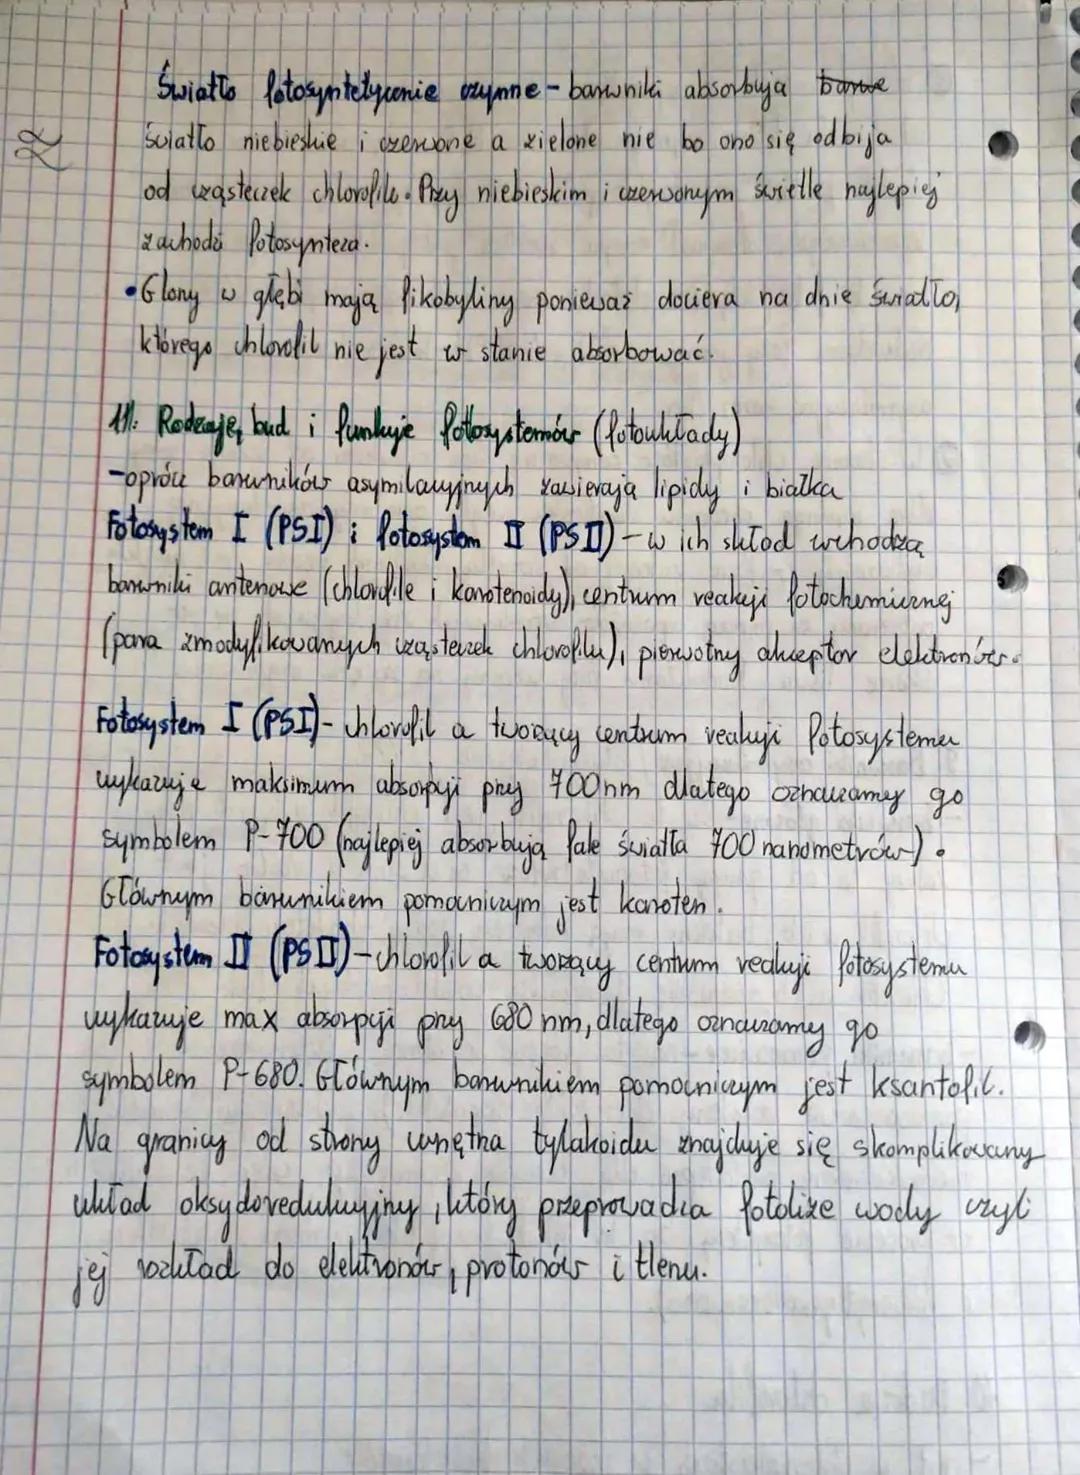 Światło fotosyntetycznie czynne - barwniki absorbują barwe
światło niebieskie i czerwone a zielone nie bo ono się odbija
22
od cząsteczek chlorofilu. Przy niebieskim i czerwonym świetle najlepiej
zachodzi fotosynteza.
• Glony w głębi mają fikobyliny ponieważ dociera na dnie światło,
którego chlorofil nie jest w stanie absorbować.
11. Rodzaje, bud i funkcje fotosystemów (fotoukłady)
- oprócz barwników asymilacyjnych zawierają lipidy i białka
Fotosystem I (PSI) i fotosystem II (PSII) - w ich skład wchodzą
barwniki antenowe (chlorofile i karotenoidy), centrum reakcji fotochemicznej
(para zmodyfikowanych cząsteczek chlorofilu), pierwotny akceptor elektronów.
Fotosystem I (PSI) - chlorofil a tworzący centrum reakcji fotosystemu
wykazuje maksimum absorpcji przy 700nm dlatego oznaczamy go
symbolem P-700 (najlepiej absorbują fale światła 700 nanometrów).
Głównym barwnikiem pomocniczym jest karoten.
Fotosystem II (PSII) - chlorofil a tworzący centrum reakcji fotosystemu
wykazuje max absorpcji przy 680 nm, dlatego oznaczamy go
symbolem P-680. Głównym barwnikiem pomocniczym jest ksantofil.
Na granicy od strony wnętrza tylakoidu znajduje się skomplikowany
układ oksydoredukcyjny, który przeprowadza fotolize wody czyli
jej rozkład do elektronów, protonów i tlenu.